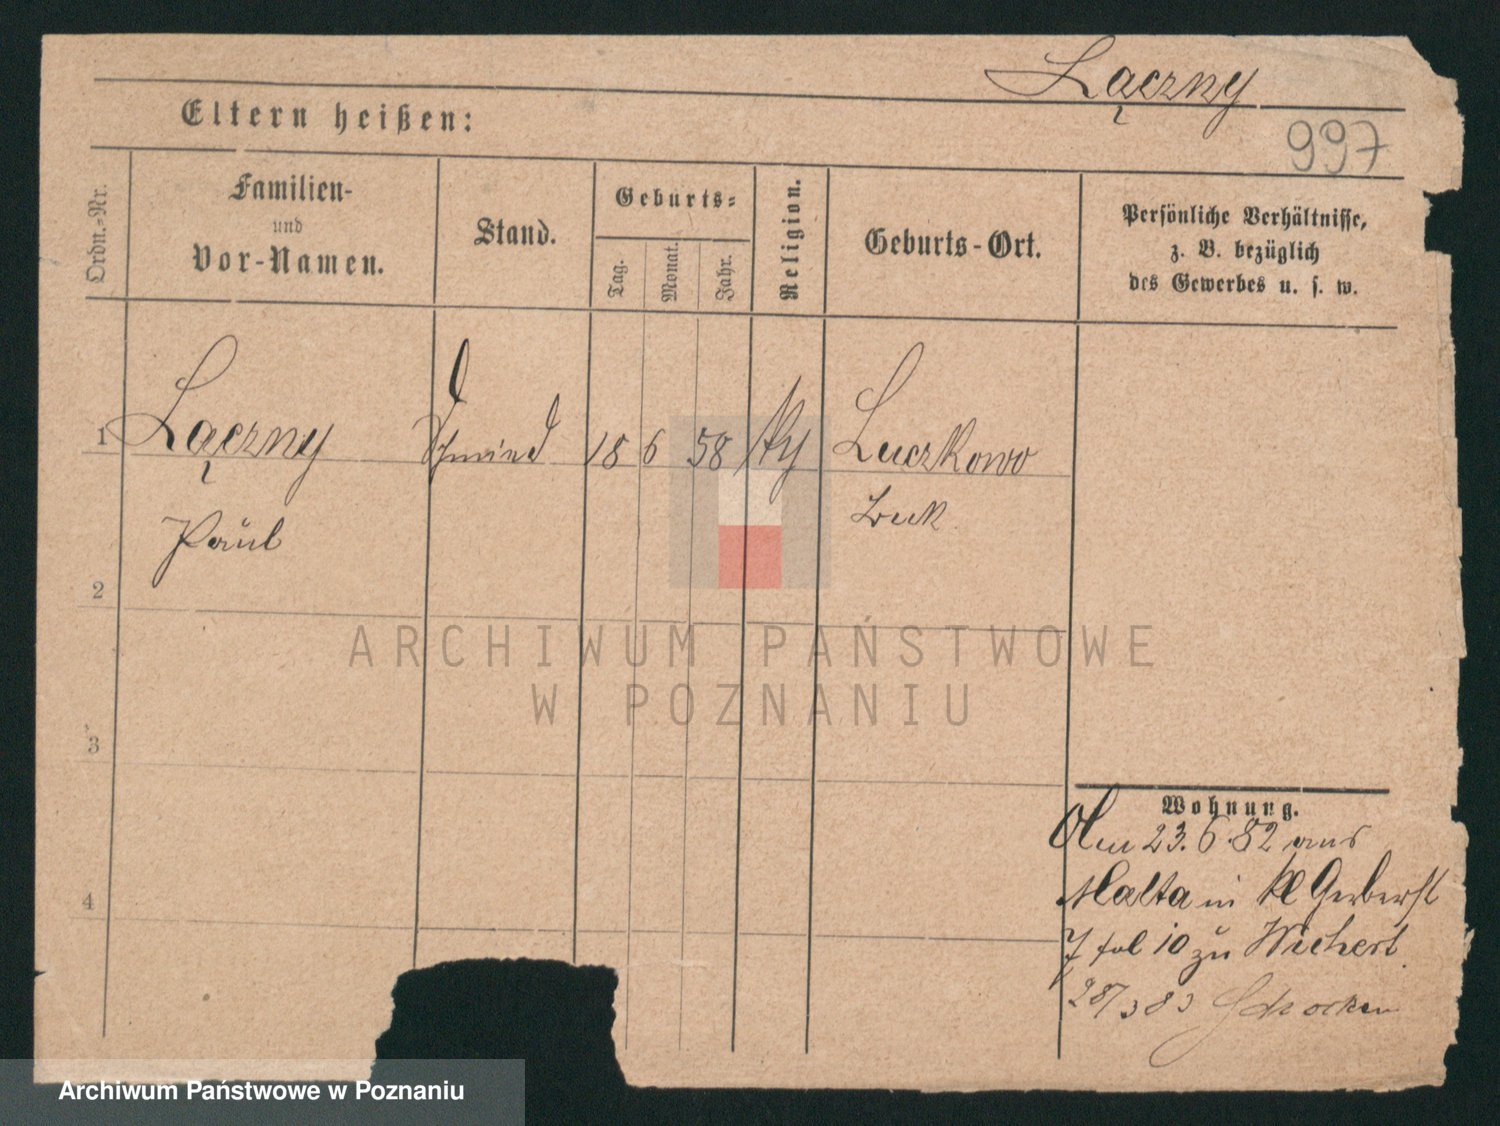 Łączny
Eltern heißen:
997
Ordn.-Nr.
Familien-
und
Vor-Namen.
Stand.
Geburts-
Tag.
Monat.
Jahr.
Religion.
Geburts-Ort.
Persönliche Verhältnisse,
z. B. bezüglich
des Gewerbes u. s. w.
1 Łączny Schmied 18 6 58 Luczkowo
Paul
2
3
4
Wohnung.
Am 23.6.82 aus
Malta in kl Gerberst
7 fol 10 zu Wichert
28/3 83 Schocken
ARCHIWUM PAŃSTWOWE
W POZNANIU
Archiwum Państwowe w Poznaniu